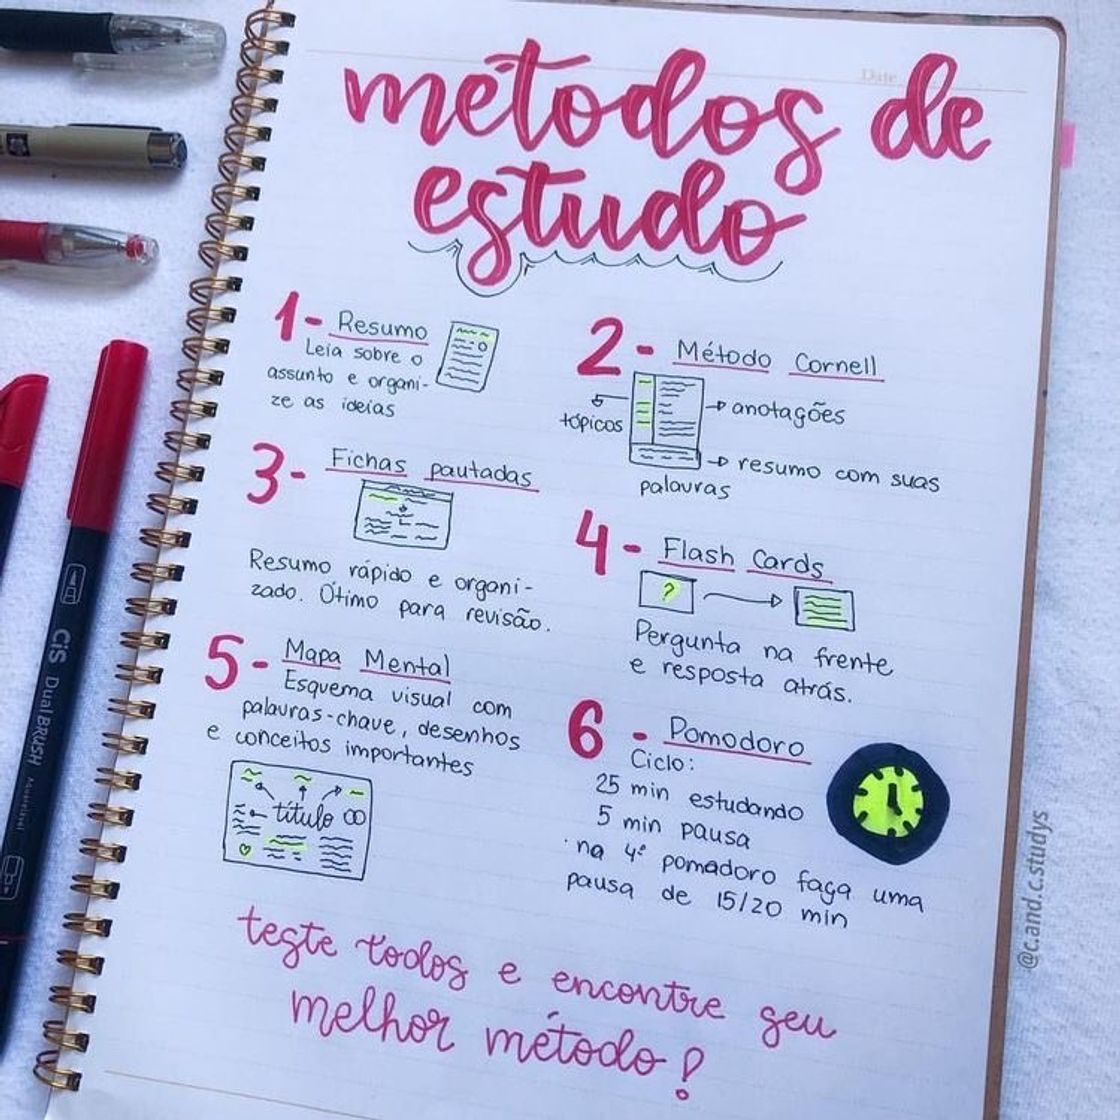 Date
métodos de
estudo
1- Resumo
Leia sobre o
assunto e organi-
ze as ideias
2- Método Cornell
tópicos
anotações
resumo com suas
palavras
3- Fichas pautadas
Resumo rápido e organi-
zado. Ótimo para revisão.
4- Flash Cards
?
Pergunta na frente
e resposta atrás.
5- Mapa Mental
Esquema visual com
palavras-chave, desenhos
e conceitos importantes
título
6- Pomodoro
Ciclo:
25 min estudando
5 min pausa
na 4º pomadoro faça uma
pausa de 15/20 min
teste todos e encontre seu
melhor método!
CiS Dual BRUSH
@c.and.c.studys